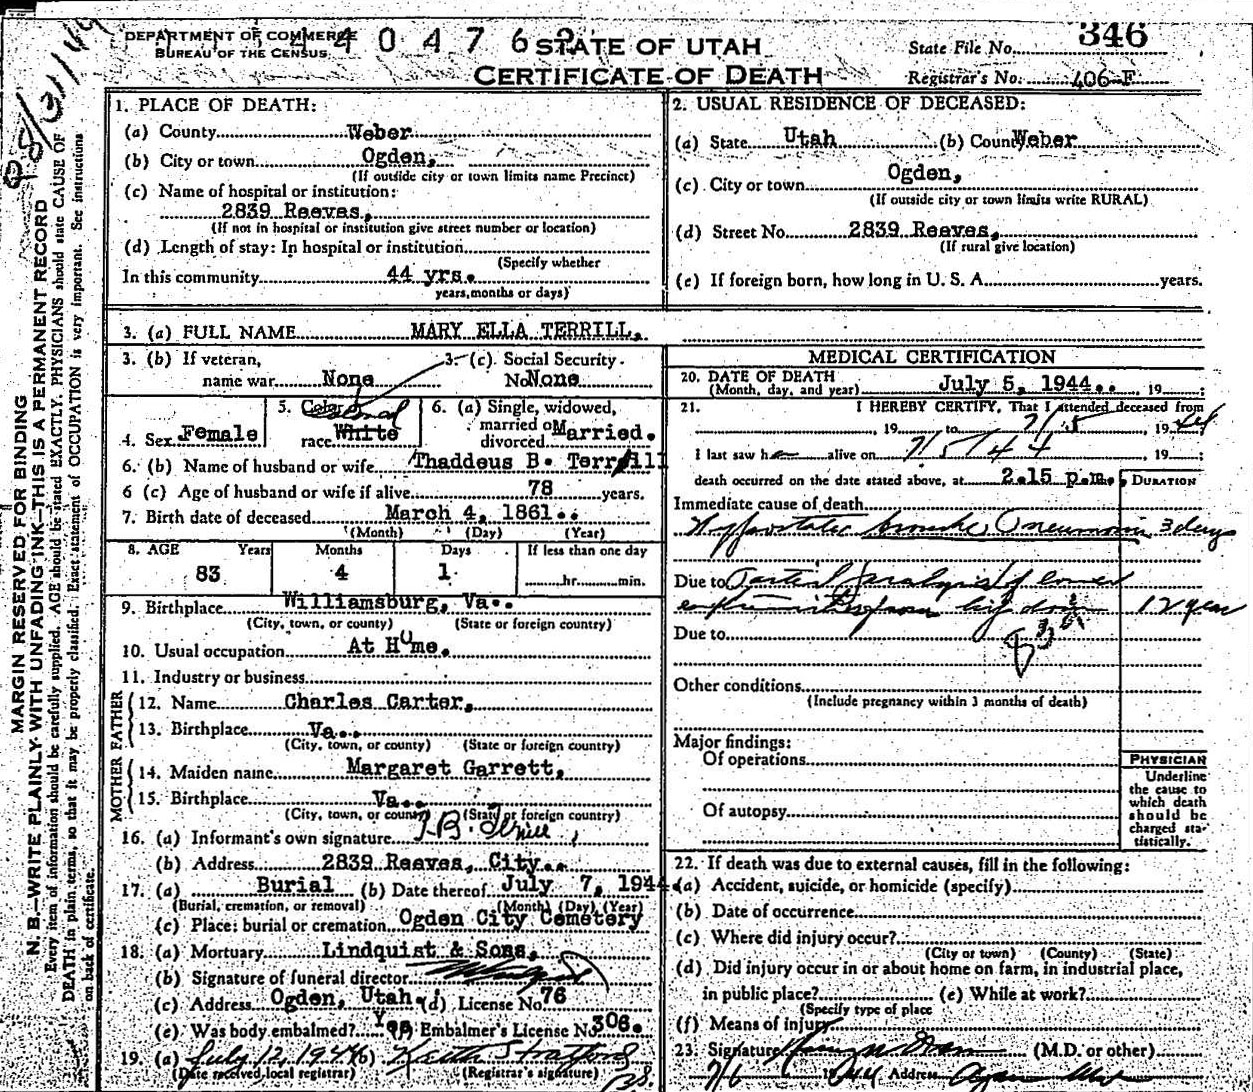 DEPARTMENT OF COMMERCE
BUREAU OF THE CENSUS
STATE OF UTAH
CERTIFICATE OF DEATH
State File No. 346
Registrar's No. 406-F
8/31/44
MARGIN RESERVED FOR BINDING
N. B.—WRITE PLAINLY WITH UNFADING INK—THIS IS A PERMANENT RECORD
Every item of information should be carefully supplied. AGE should be stated EXACTLY. PHYSICIANS should state CAUSE OF
DEATH in plain terms, so that it may be properly classified. Exact statement of OCCUPATION is very important. See instructions
on back of certificate.
1. PLACE OF DEATH:
(a) County Weber
(b) City or town Ogden,
(If outside city or town limits name Precinct)
(c) Name of hospital or institution:
2839 Reeves,
(If not in hospital or institution give street number or location)
(d) Length of stay: In hospital or institution
(Specify whether
In this community 44 yrs.
years, months or days)
2. USUAL RESIDENCE OF DECEASED:
(a) State Utah (b) County Weber
(c) City or town Ogden,
(If outside city or town limits write RURAL)
(d) Street No. 2839 Reeves,
(If rural give location)
(e) If foreign born, how long in U. S. A. years.
3. (a) FULL NAME MARY ELLA TERRILL,
3. (b) If veteran,
name war None
3. (c) Social Security
No None
4. Sex Female
5. Color or
race White
6. (a) Single, widowed,
married or
divorced Married.
6. (b) Name of husband or wife Thaddeus B. Terrill
6 (c) Age of husband or wife if alive 78 years.
7. Birth date of deceased March 4, 1861..
(Month) (Day) (Year)
8. AGE Years Months Days If less than one day
83 4 1 hr. min.
9. Birthplace Williamsburg, Va..
(City, town, or county) (State or foreign country)
10. Usual occupation At Home.
11. Industry or business
FATHER
12. Name Charles Carter,
13. Birthplace Va..
(City, town, or county) (State or foreign country)
MOTHER
14. Maiden name Margaret Garrett,
15. Birthplace Va..
(City, town, or county) (State or foreign country)
16. (a) Informant's own signature T.B. Terrill
(b) Address 2839 Reeves, City..
17. (a) Burial (b) Date thereof July 7, 1944.
(Burial, cremation, or removal) (Month) (Day) (Year)
(c) Place: burial or cremation Ogden City Cemetery
18. (a) Mortuary Lindquist & Sons,
(b) Signature of funeral director
(c) Address Ogden, Utah. (d) License No. 76
(e) Was body embalmed? Yes Embalmer's License No. 306.
19. (a) July 12, 1944 (b) Keith Stratford
(Date received local registrar) (Registrar's signature)
MEDICAL CERTIFICATION
20. DATE OF DEATH
(Month, day, and year) July 5, 1944.. , 19
21. I HEREBY CERTIFY, That I attended deceased from
, 19 to 7/5 , 1944
I last saw h alive on 7/5/44 , 19 ;
death occurred on the date stated above, at 2.15 p.m.
DURATION
Immediate cause of death
Hypostatic broncho Pneumonia 3 days
Due to Partial paralysis of lower
from 12 year
Due to
Other conditions
(Include pregnancy within 3 months of death)
Major findings:
Of operations
Of autopsy
PHYSICIAN
Underline
the cause to
which death
should be
charged sta-
tistically.
22. If death was due to external causes, fill in the following:
(a) Accident, suicide, or homicide (specify)
(b) Date of occurrence
(c) Where did injury occur?
(City or town) (County) (State)
(d) Did injury occur in or about home on farm, in industrial place,
in public place? (e) While at work?
(Specify type of place
(f) Means of injury
23. Signature (M.D. or other)
7/6 1944 Address Ogden Utah